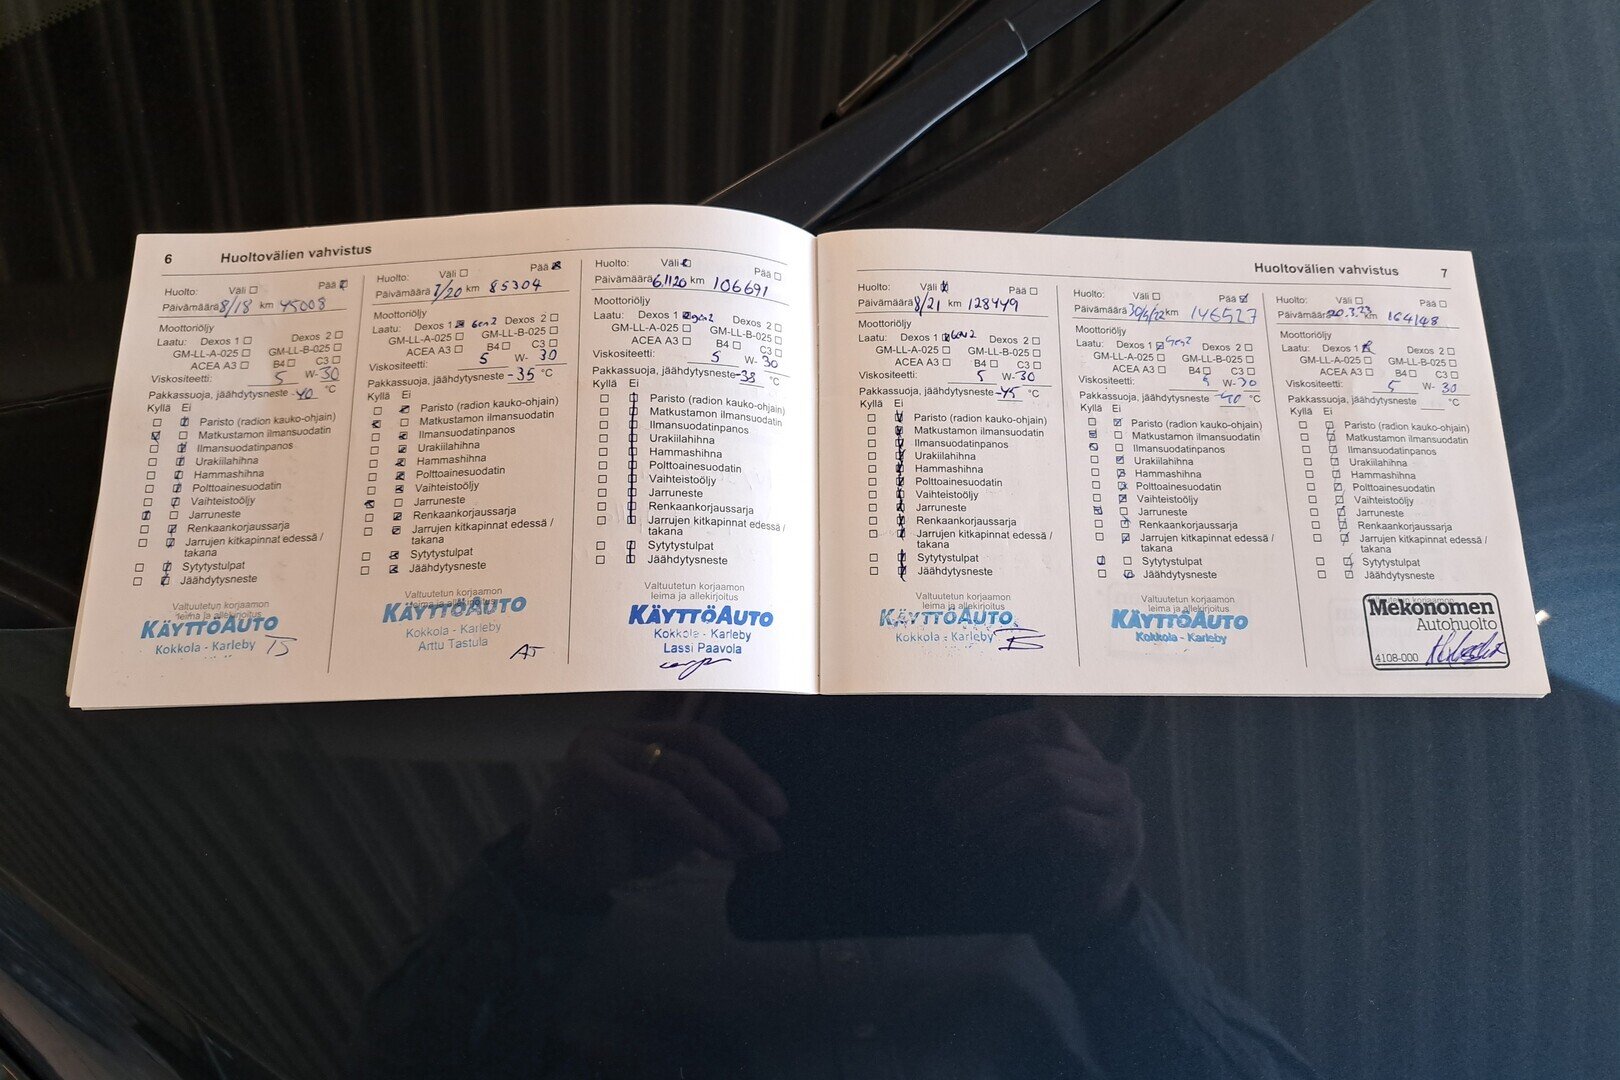 6 Huoltovälien vahvistus
Huolto: Väli ☐ Pää ☒
Päivämäärä 8/18 km 45008
Moottoriöljy
Laatu: Dexos 1 ☐ Dexos 2 ☐
GM-LL-A-025 ☐ GM-LL-B-025 ☐
ACEA A3 ☐ B4 ☐ C3 ☐
Viskositeetti: 5 W- 30
Pakkassuoja, jäähdytysneste -40 °C
Kyllä Ei
Paristo (radion kauko-ohjain)
Matkustamon ilmansuodatin
Ilmansuodatinpanos
Urakiilahihna
Hammashihna
Polttoainesuodatin
Vaihteistoöljy
Jarruneste
Renkaankorjaussarja
Jarrujen kitkapinnat edessä /
takana
Sytytystulpat
Jäähdytysneste
Valtuutetun korjaamon
leima ja allekirjoitus
KÄYTTÖAUTO
Kokkola - Karleby
TS
Huolto: Väli ☐ Pää ☒
Päivämäärä 7/20 km 85304
Moottoriöljy
Laatu: Dexos 1 ☒ Gen2 Dexos 2 ☐
GM-LL-A-025 ☐ GM-LL-B-025 ☐
ACEA A3 ☐ B4 ☐ C3 ☐
Viskositeetti: 5 W- 30
Pakkassuoja, jäähdytysneste -35 °C
Kyllä Ei
Paristo (radion kauko-ohjain)
Matkustamon ilmansuodatin
Ilmansuodatinpanos
Urakiilahihna
Hammashihna
Polttoainesuodatin
Vaihteistoöljy
Jarruneste
Renkaankorjaussarja
Jarrujen kitkapinnat edessä /
takana
Sytytystulpat
Jäähdytysneste
Valtuutetun korjaamon
leima ja allekirjoitus
KÄYTTÖAUTO
Kokkola - Karleby
Arttu Tastula
AT
Huolto: Väli ☒ Pää ☐
Päivämäärä 6.1120 km 106691
Moottoriöljy
Laatu: Dexos 1 ☒ gen2 Dexos 2 ☐
GM-LL-A-025 ☐ GM-LL-B-025 ☐
ACEA A3 ☐ B4 ☐ C3 ☐
Viskositeetti: 5 W- 30
Pakkassuoja, jäähdytysneste -38 °C
Kyllä Ei
Paristo (radion kauko-ohjain)
Matkustamon ilmansuodatin
Ilmansuodatinpanos
Urakiilahihna
Hammashihna
Polttoainesuodatin
Vaihteistoöljy
Jarruneste
Renkaankorjaussarja
Jarrujen kitkapinnat edessä /
takana
Sytytystulpat
Jäähdytysneste
Valtuutetun korjaamon
leima ja allekirjoitus
KÄYTTÖAUTO
Kokkola - Karleby
Lassi Paavola
Huoltovälien vahvistus 7
Huolto: Väli ☒ Pää ☐
Päivämäärä 8/21 km 128449
Moottoriöljy
Laatu: Dexos 1 ☒ Gen2 Dexos 2 ☐
GM-LL-A-025 ☐ GM-LL-B-025 ☐
ACEA A3 ☐ B4 ☐ C3 ☐
Viskositeetti: 5 W- 30
Pakkassuoja, jäähdytysneste -45 °C
Kyllä Ei
Paristo (radion kauko-ohjain)
Matkustamon ilmansuodatin
Ilmansuodatinpanos
Urakiilahihna
Hammashihna
Polttoainesuodatin
Vaihteistoöljy
Jarruneste
Renkaankorjaussarja
Jarrujen kitkapinnat edessä /
takana
Sytytystulpat
Jäähdytysneste
Valtuutetun korjaamon
leima ja allekirjoitus
KÄYTTÖAUTO
Kokkola - Karleby
Huolto: Väli ☐ Pää ☒
Päivämäärä 30/5/22 km 146527
Moottoriöljy
Laatu: Dexos 1 ☒ Gen2 Dexos 2 ☐
GM-LL-A-025 ☐ GM-LL-B-025 ☐
ACEA A3 ☐ B4 ☐ C3 ☐
Viskositeetti: 5 W- 30
Pakkassuoja, jäähdytysneste -40 °C
Kyllä Ei
Paristo (radion kauko-ohjain)
Matkustamon ilmansuodatin
Ilmansuodatinpanos
Urakiilahihna
Hammashihna
Polttoainesuodatin
Vaihteistoöljy
Jarruneste
Renkaankorjaussarja
Jarrujen kitkapinnat edessä /
takana
Sytytystulpat
Jäähdytysneste
Valtuutetun korjaamon
leima ja allekirjoitus
KÄYTTÖAUTO
Kokkola - Karleby
Huolto: Väli ☐ Pää ☐
Päivämäärä 20.3.23 km 164148
Moottoriöljy
Laatu: Dexos 1 ☒ Dexos 2 ☐
GM-LL-A-025 ☐ GM-LL-B-025 ☐
ACEA A3 ☐ B4 ☐ C3 ☐
Viskositeetti: 5 W- 30
Pakkassuoja, jäähdytysneste °C
Kyllä Ei
Paristo (radion kauko-ohjain)
Matkustamon ilmansuodatin
Ilmansuodatinpanos
Urakiilahihna
Hammashihna
Polttoainesuodatin
Vaihteistoöljy
Jarruneste
Renkaankorjaussarja
Jarrujen kitkapinnat edessä /
takana
Sytytystulpat
Jäähdytysneste
Mekonomen
Autohuolto
4108-000